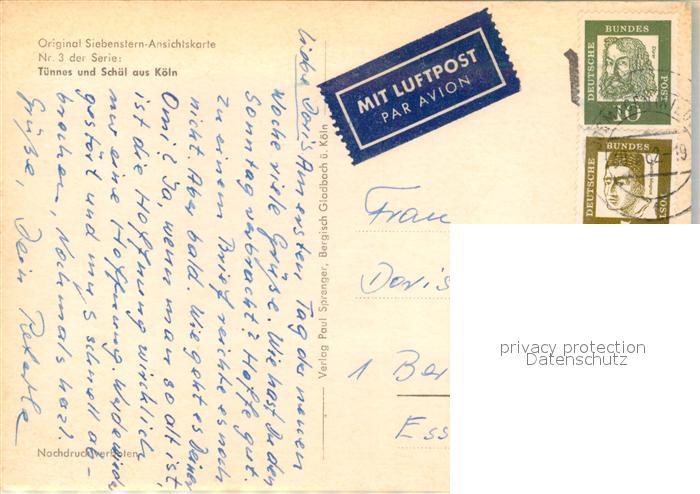 Original Siebenstern-Ansichtskarte
Nr. 3 der Serie:
Tünnes und Schäl aus Köln
Liebe Doris! Am ersten Tag der neuen
Woche viele Grüße. Wie hast Du den
Sonntag verbracht? Hoffe gut.
Zu einem Brief reichte es noch
nicht. Aber bald. Wie geht es Deiner
Omi? Ja, wenn man so alt ist,
ist die Hoffnung wirklich
nur eine Hoffnung.
gestört und muß schnell ab-
brechen. Nochmals herzl.
Grüße, Dein
Nachdruck verboten
Verlag Paul Sprenger, Bergisch Gladbach ü. Köln
MIT LUFTPOST
PAR AVION
DEUTSCHE BUNDES POST
Dürer
10
DEUTSCHE BUNDES POST
Frau
Doris
1 Ber
Ess
privacy protection
Datenschutz